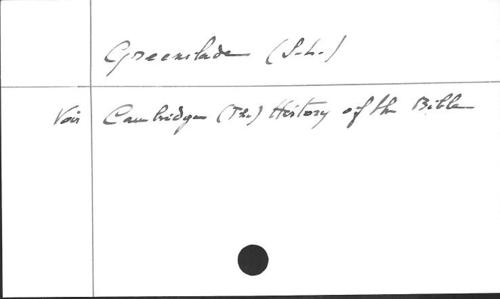 Greenslade (S.L.)
Voir Cambridge (The) History of the Bible